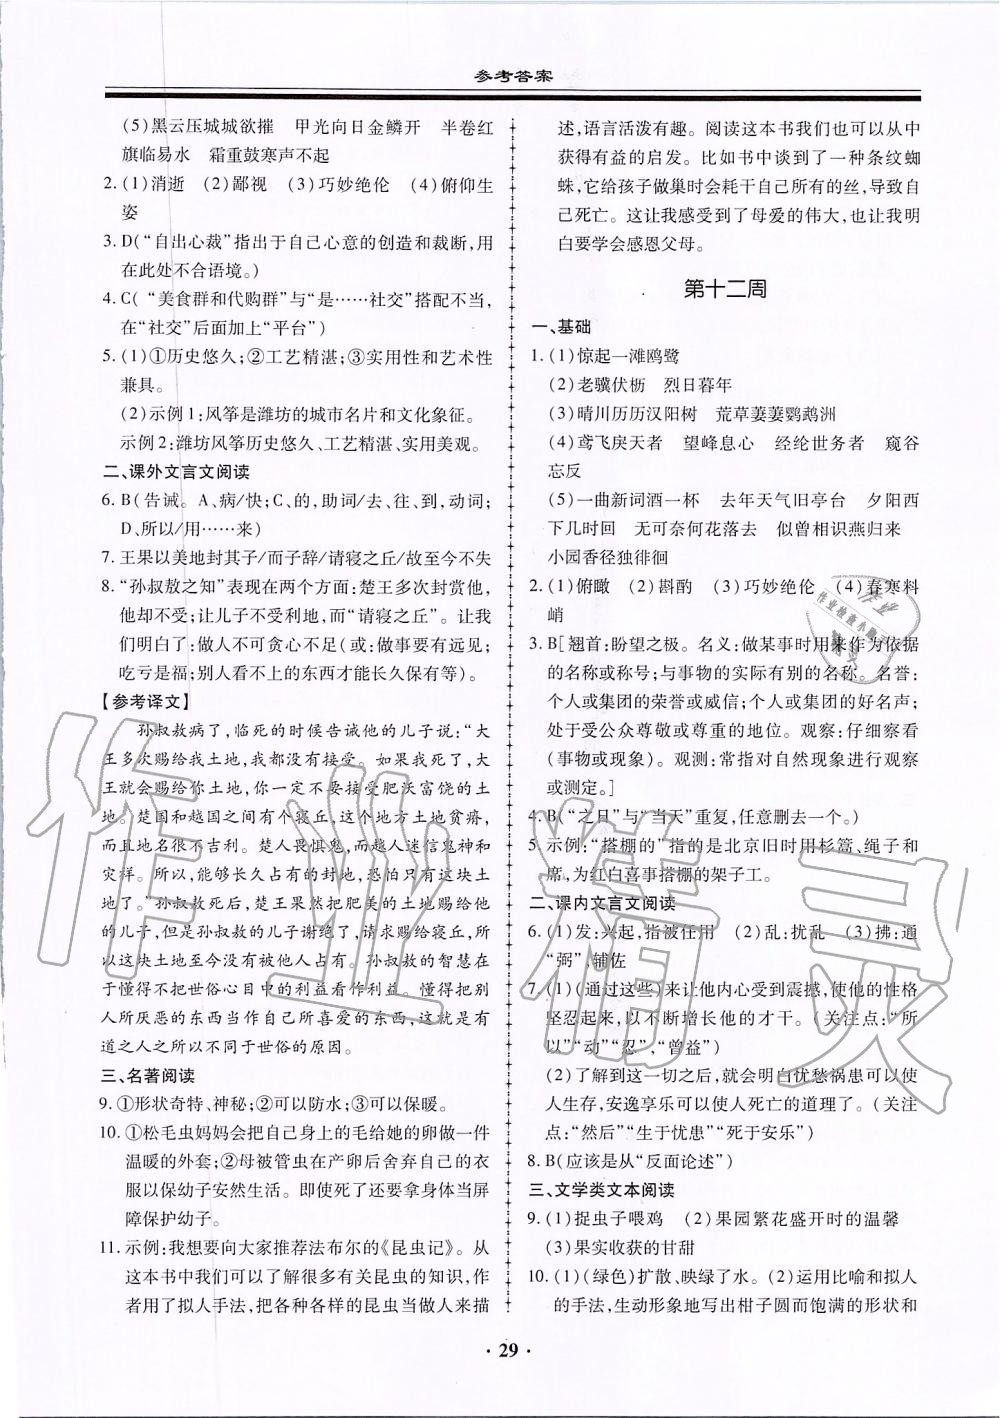 参考答案
(5)黑云压城城欲摧　甲光向日金鳞开　半卷红
旗临易水　霜重鼓寒声不起
2. (1)消逝　(2)鄙视　(3)巧妙绝伦　(4)俯仰生
姿
3. D(“自出心裁”指出于自己心意的创造和裁断,用
在此处不合语境。)
4. C(“美食群和代购群”与“是……社交”搭配不当,
在“社交”后面加上“平台”)
5. (1)①历史悠久;②工艺精湛;③实用性和艺术性
兼具。
(2)示例1:风筝是潍坊的城市名片和文化象征。
示例2:潍坊风筝历史悠久、工艺精湛、实用美观。
二、课外文言文阅读
6. B(告诫。A、病/快;C、的,助词/去、往、到,动词;
D、所以/用……来)
7. 王果以美地封其子/而子辞/请寝之丘/故至今不失
8. “孙叔敖之知”表现在两个方面:楚王多次封赏他,
他却不受;让儿子不受利地,而“请寝之丘”。让我
们明白了:做人不可贪心不足(或:做事要有远见;
吃亏是福;别人看不上的东西才能长久保有等)。
【参考译文】
孙叔敖病了,临死的时候告诫他的儿子说:“大
王多次赐给我土地,我都没有接受。如果我死了,大
王就会赐给你土地,你一定不要接受肥沃富饶的土
地。楚国和越国之间有个寝丘,这个地方土地贫瘠,
而且地名很不吉利。楚人畏惧鬼,而越人迷信鬼神和
灾祥。所以,能够长久占有的封地,恐怕只有这块土
地了。”孙叔敖死后,楚王果然把肥美的土地赐给他
的儿子,但是孙叔敖的儿子谢绝了,请求赐给寝丘,所
以这块土地至今没有被他人占有。孙叔敖的智慧在
于懂得不把世俗心目中的利益看作利益。懂得把别
人所厌恶的东西当作自己所喜爱的东西,这就是有
道之人之所以不同于世俗的原因。
三、名著阅读
9. ①形状奇特、神秘;②可以防水;③可以保暖。
10. ①松毛虫妈妈会把自己身上的毛给她的卵做一件
温暖的外套;②母被管虫在产卵后舍弃自己的衣
服以保幼子安然生活。即使死了还要拿身体当屏
障保护幼子。
11. 示例:我想要向大家推荐法布尔的《昆虫记》。从
这本书中我们可以了解许多有关昆虫的知识,作
者用了拟人手法,把各种各样的昆虫当做人来描
述,语言活泼有趣。阅读这本书我们也可以从中
获得有益的启发。比如书中谈到了一种条纹蜘
蛛,它给孩子做巢时会耗干自己所有的丝,导致自
己死亡。这让我感受到了母爱的伟大,也让我明
白要学会感恩父母。
第十二周
一、基础
1. (1)惊起一滩鸥鹭
(2)老骥伏枥　烈日暮年
(3)晴川历历汉阳树　荒草萋萋鹦鹉洲
(4)鸢飞戾天者　望峰息心　经纶世务者　窥谷
忘反
(5)一曲新词酒一杯　去年天气旧亭台　夕阳西
下几时回　无可奈何花落去　似曾相识燕归来
小园香径独徘徊
2. (1)俯瞰　(2)斟酌　(3)巧妙绝伦　(4)春寒料
峭
3. B[翘首:盼望之极。名义:做某事时用来作为依据
的名称或称号;与事物的实际有别的名称。名誉:
个人或集团的荣誉或威信;个人或集团的好名声;
处于受公众尊敬或尊重的地位。观察:仔细察看
(事物或现象)。观测:常指对自然现象进行观察
或测定。]
4. B(“之日”与“当天”重复,任意删去一个。)
5. 示例:“搭棚的”指的是北京旧时用杉篙、绳子和
席,为红白喜事搭棚的架子工。
二、课内文言文阅读
6. (1)发:兴起,指被任用　(2)乱:扰乱　(3)拂:通
“弼”　辅佐
7. (1)(通过这些)来让他内心受到震撼,使他的性格
坚忍起来,以不断增长他的才干。(关注点:“所
以”“动”“忍”,“曾益”)
(2)了解到这一切之后,就会明白忧愁祸患可以使
人生存,安逸享乐可以使人死亡的道理了。(关注
点:“然后”“生于忧患”“死于安乐”)
8. B(应该是从“反面论述”)
三、文学类文本阅读
9. (1)捉虫子喂鸡　(2)果园繁花盛开时的温馨
(3)果实收获的甘甜
10. (1)(绿色)扩散、映绿了水。(2)运用比喻和拟人
的手法,生动形象地写出柑子圆而饱满的形状和
· 29 ·
作业精灵